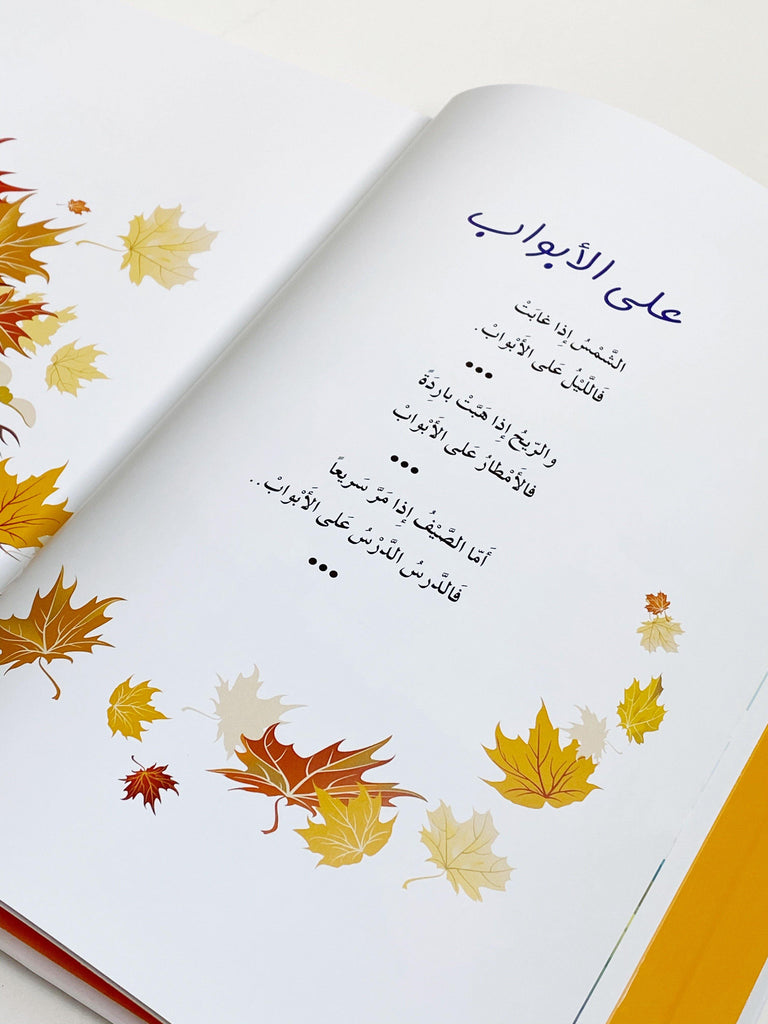 على الأبواب
الشَّمْسُ إِذا غابَتْ
فَاللَّيْلُ عَلى الأَبْوابْ.
•••
والرّيحُ إِذا هَبَّتْ بارِدَةً
فالأَمْطارُ عَلى الأَبْوابْ
•••
أَمّا الصَّيْفُ إِذا مَرَّ سَريعاً
فَالدَّرسُ الدَّرْسُ عَلى الأَبْوابْ..
•••